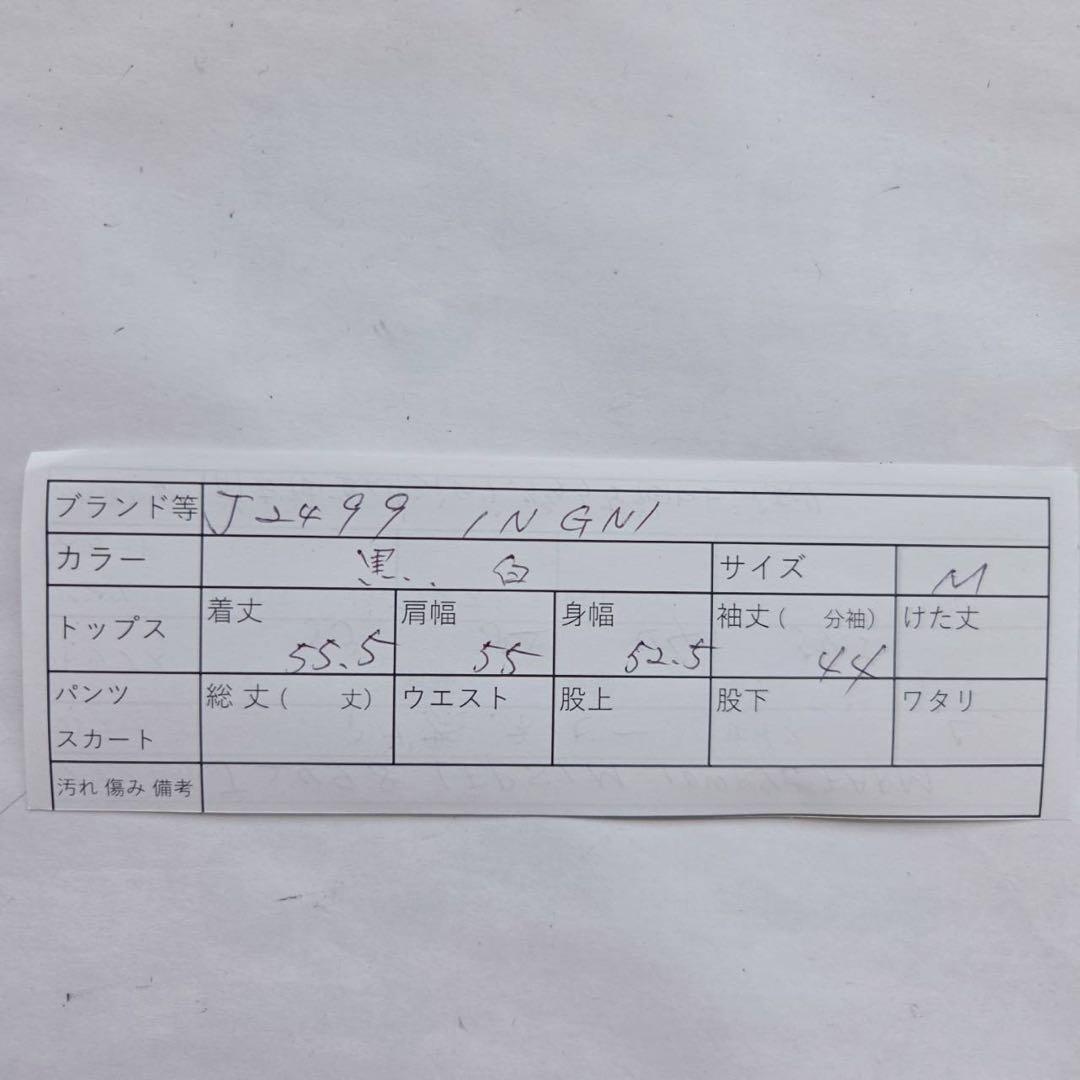 ブランド等 J2499 INGNI
カラー 黒、白 サイズ M
トップス 着丈 55.5 肩幅 55 身幅 52.5 袖丈( 分袖) 44 けた丈
パンツ スカート 総丈( 丈) ウエスト 股上 股下 ワタリ
汚れ 傷み 備考